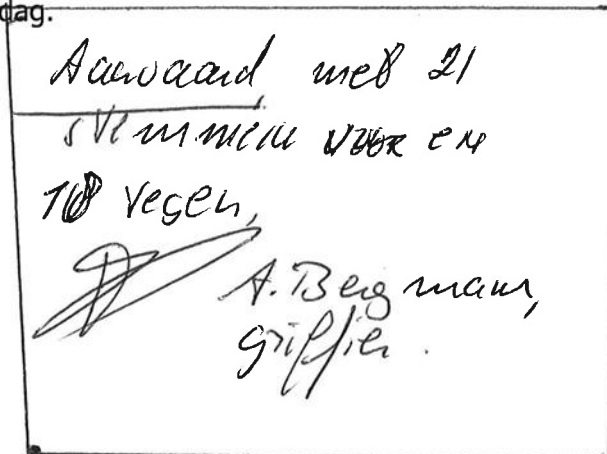 dag.
Aanvaard met 21
stemmen voor en
tegen,
A. Bergmann,
griffier.